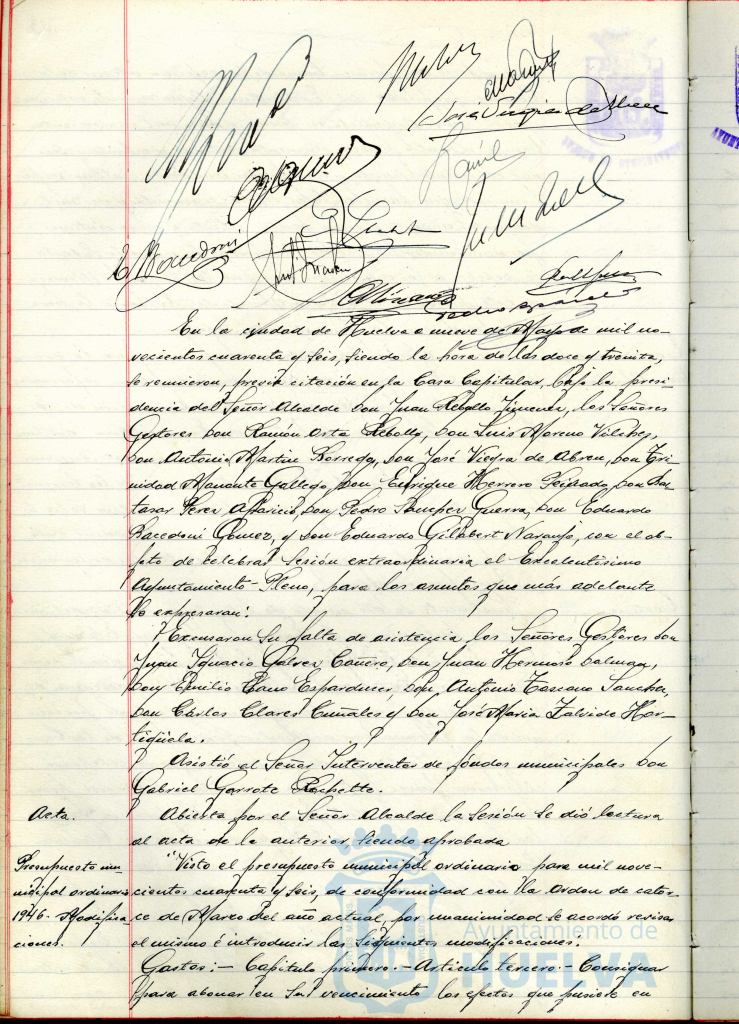 José Viegra de Abreu
Raúl
E. Bacedoni
En la ciudad de Huelva a nueve de Mayo de mil no-
vecientos cuarenta y seis, siendo la hora de las doce y treinta,
se reunieron, previa citación en la Casa Capitular, bajo la presi-
dencia del Señor Alcalde Don Juan Rebollo Jimenez, los Señores
Gestores Don Ramón Orta Rebollo, Don Luis Moreno Vilches,
Don Antonio Martin Borrego, Don José Viegra de Abreu, Don Tri-
nidad Gallego, Don Enrique Herrero Don Bal-
tasar Perez Aparicio, Don Pedro Sanchez Guerra, Don Eduardo
Bacedoni Gomez, y Don Eduardo Gilabert Naranjo, con el ob-
jeto de celebrar Sesión extraordinaria el Excelentísimo
Ayuntamiento Pleno, para los asuntos que más adelante
se expresaran:
Excusaron su falta de asistencia los Señores Gestores Don
Juan Ignacio Galvez Cañero, Don Juan Hermoso
Don Emilio Cano Don Antonio Toscano Sanchez,
Don Cárlos Clares y Don José Maria Zalvide Hor-
tigüela.
Asistió el Señor Interventor de fondos municipales Don
Gabriel Garrote
Acta.
Abierta por el Señor Alcalde la Sesión se dió lectura
al acta de la anterior, siendo aprobada
Presupuesto mu-
nicipal ordinario
1946- Modifica-
ciones.
"Visto el presupuesto municipal ordinario para mil nove-
cientos cuarenta y seis, de conformidad con la Orden de cator-
ce de Marzo del año actual, por unanimidad se acordó revisar
el mismo é introducir las siguientes modificaciones:
Gastos:- Capitulo primero.- Articulo tercero:- Consignar
para abonar en su vencimiento los efectos que pusiere en
Ayuntamiento de
HUELVA